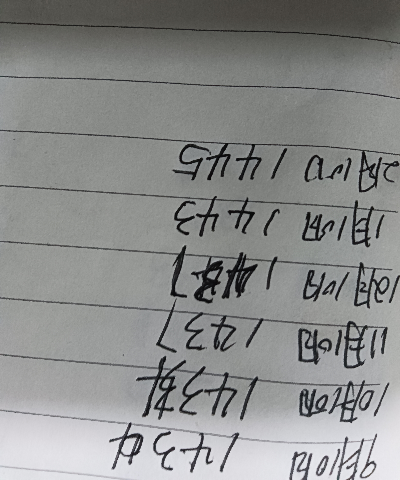 9월10일 1434
10월10일
11월10일 1437
12월10일
1월10일 1443
2월10일 1445